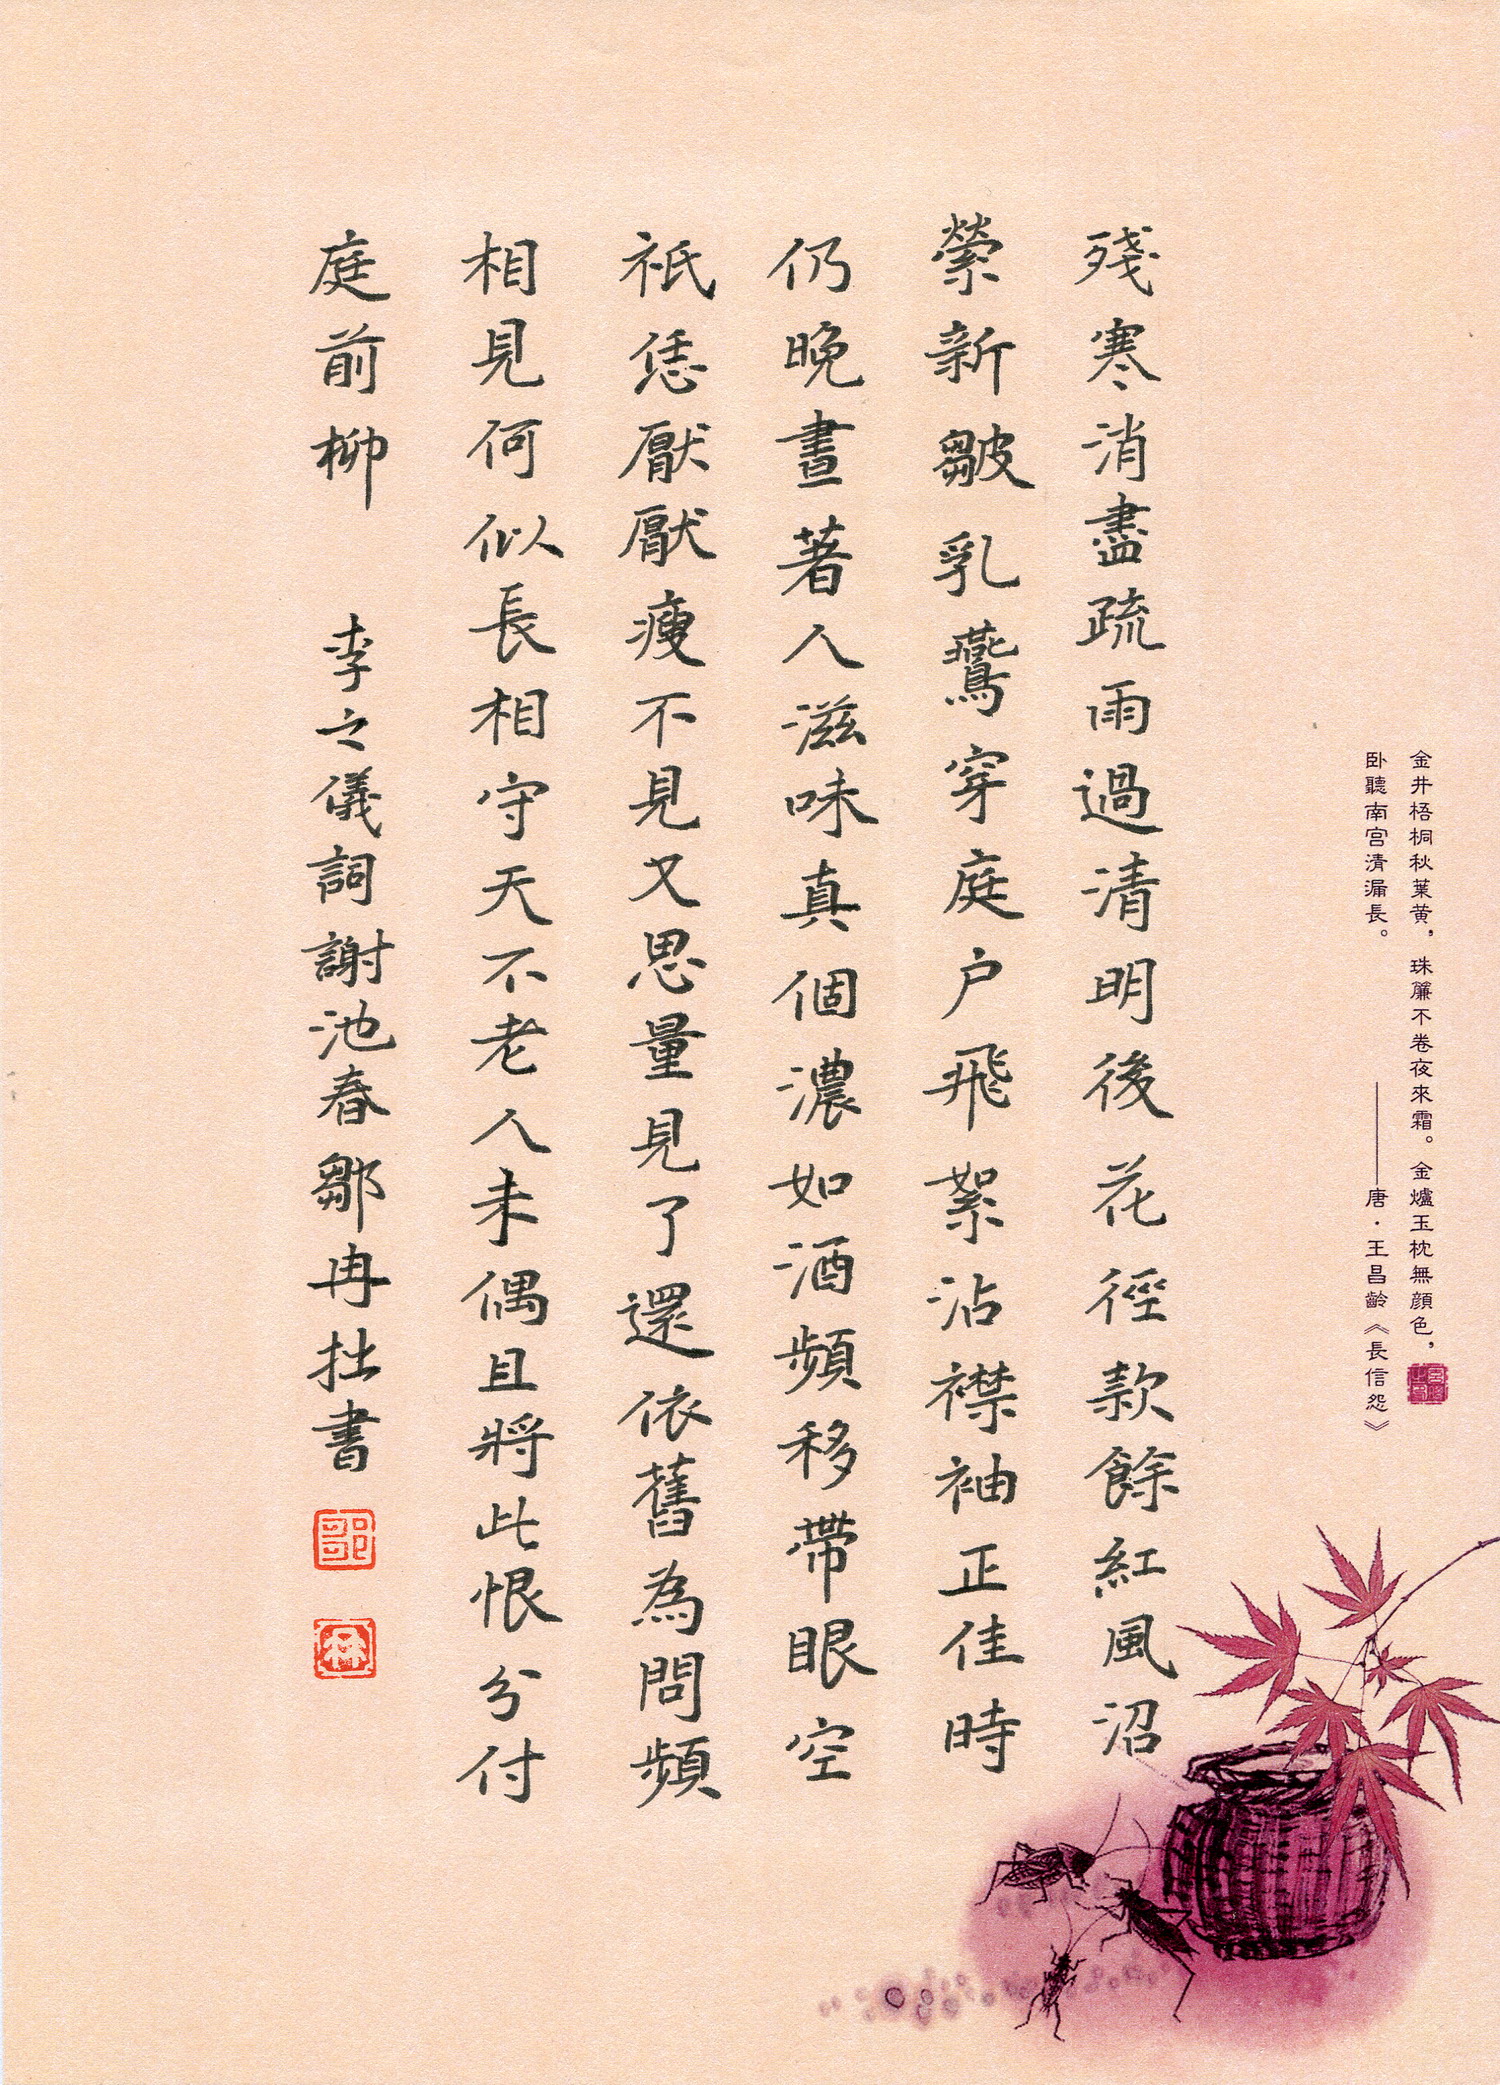 金井梧桐秋葉黄，珠簾不卷夜來霜。金爐玉枕無顔色，
卧聽南宫清漏長。
———唐·王昌齡《長信怨》
殘寒消盡疏雨過清明後花徑款餘紅風沼
縈新皺乳鷰穿庭户飛絮沾襟袖正佳時
仍晚晝著人滋味真個濃如酒頻移帶眼空
祇恁厭厭瘦不見又思量見了還依舊為問頻
相見何似長相守天不老人未偶且將此恨分付
庭前柳 李之儀詞謝池春鄒冉拙書